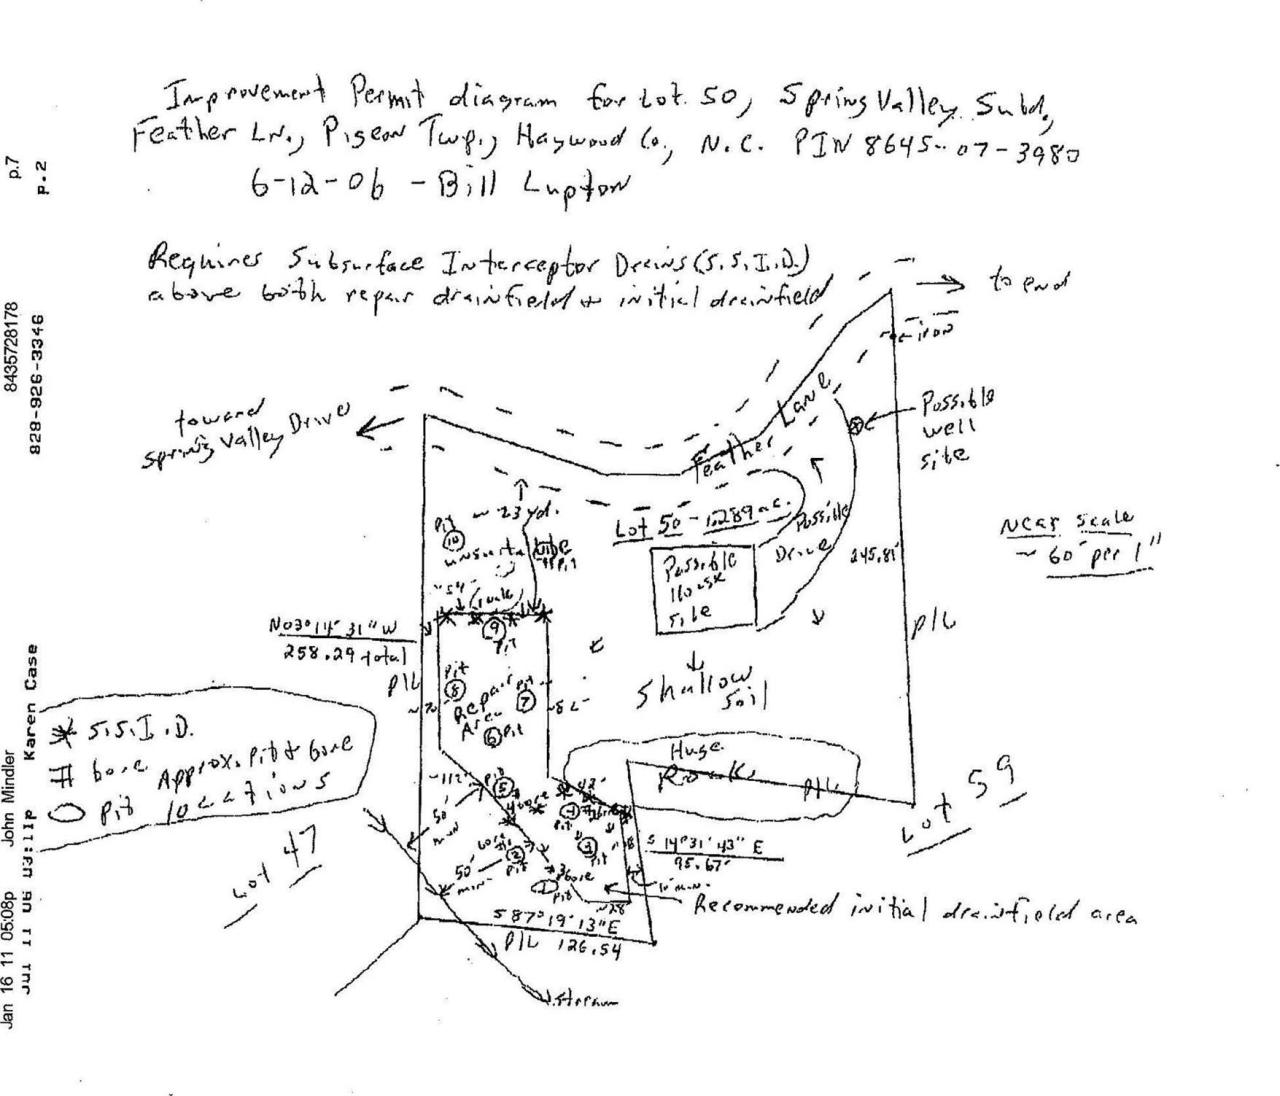 Improvement Permit diagram for Lot 50, Spring Valley Subd.,
Feather Ln., Pigeon Twp., Haywood Co., N.C. PIN 8645-07-3980
6-12-06 - Bill Lupton
Requires Subsurface Interceptor Drains (S.S.I.D.)
above both repair drainfield + initial drainfield
to end
iron
toward
Spring Valley Drive
Feather Lane
Possible
well
site
Near scale
~ 60' per 1"
~ 23 yd.
Pit
10
Lot 50 - 1.289 ac.
Possible
Drive
245.81'
Possible
House
site
N03°14'31"W
258.29 total
P/L
P/L
9
Pit
Pit
8
Repair
Area
Pit
7
6 Pit
Shallow
Soil
Huge
Rock
P/L
* S.S.I.D.
# bore Approx. pit & bore
Pit locations
~112'
Pit
5
~42'
50'
min
4
Pit
3
Pit
2
Pit
50'
min.
1
Pit
S 14°31'43" E
95.67'
10' min.
Recommended initial drainfield area
~28'
S 87°19'13"E
P/L 126.54
Stream
Lot 47
Lot 59
p.7
p.2
8435728178
828-926-3346
John Mindler
Karen Case
Jan 16 11 05:08p
Jul 11 06 03:11p